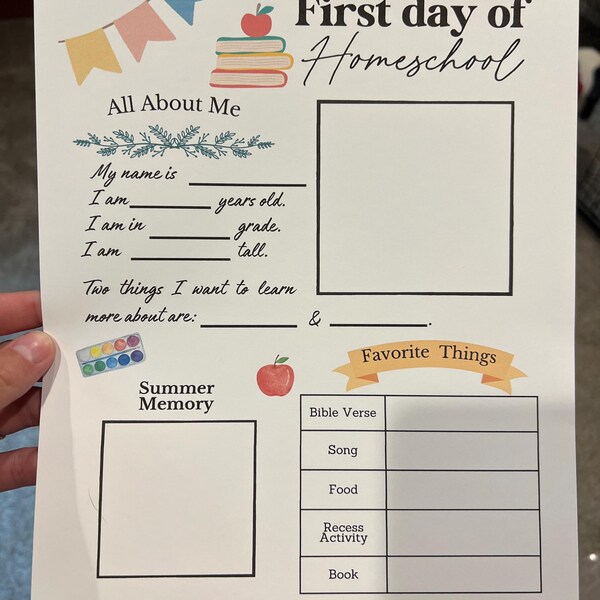 First day of
Homeschool
All About Me
My name is
I am years old.
I am in grade.
I am tall.
Two things I want to learn
more about are: & .
Favorite Things
Summer
Memory
Bible Verse
Song
Food
Recess
Activity
Book